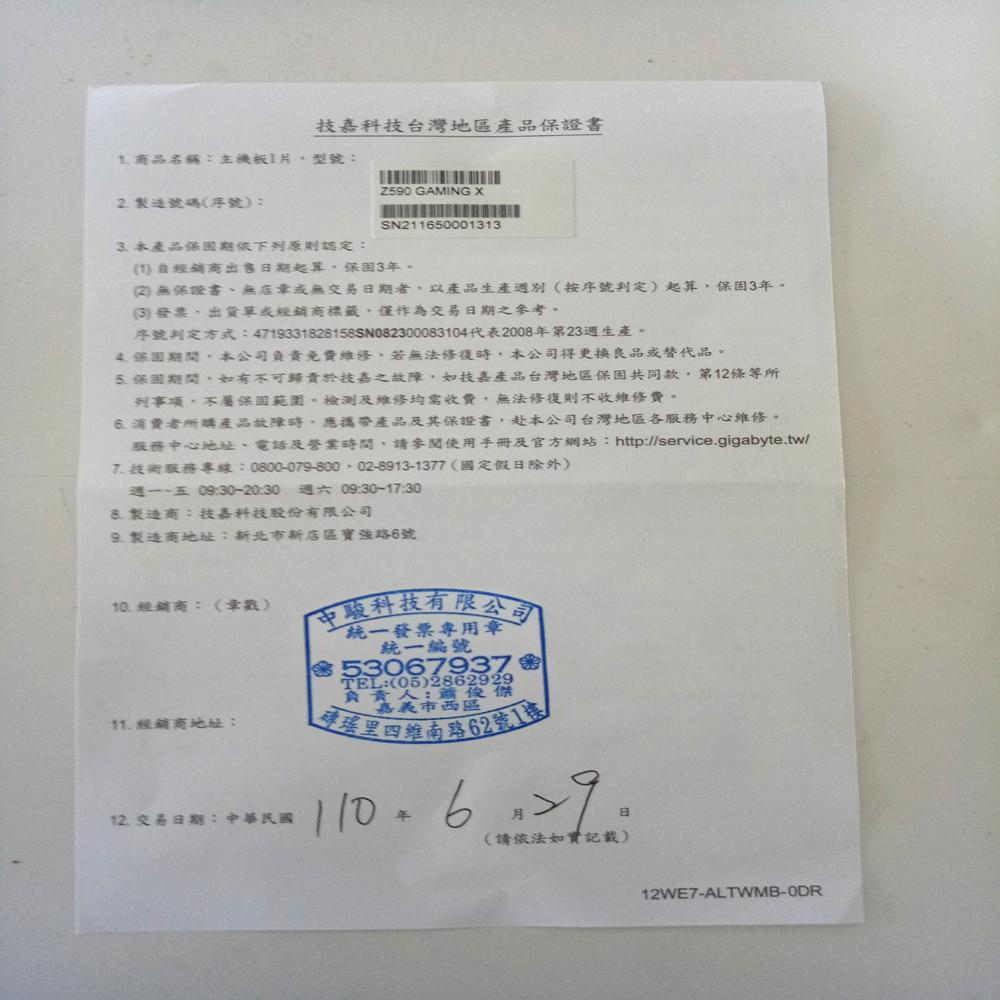 技嘉科技台灣地區產品保證書
1. 商品名稱：主機板1片，型號：
Z590 GAMING X
2. 製造號碼(序號)：
SN211650001313
3. 本產品保固期依下列原則認定：
(1) 自經銷商出售日期起算，保固3年。
(2) 無保證書、無店章或無交易日期者，以產品生產週別（按序號判定）起算，保固3年。
(3) 發票，出貨單或經銷商標籤，僅作為交易日期之參考。
序號判定方式：4719331828158SN082300083104代表2008年第23週生產。
4. 保固期間，本公司負責免費維修，若無法修復時，本公司得更換良品或替代品。
5. 保固期間，如有不可歸責於技嘉之故障，如技嘉產品台灣地區保固共同款，第12條等所
列事項，不屬保固範圍。檢測及維修均需收費，無法修復則不收維修費。
6. 消費者所購產品故障時，應攜帶產品及其保證書，赴本公司台灣地區各服務中心維修。
服務中心地址、電話及營業時間，請參閱使用手冊及官方網站：http://service.gigabyte.tw/
7. 技術服務專線：0800-079-800，02-8913-1377（國定假日除外）
週一~五 09:30~20:30 週六 09:30~17:30
8. 製造商：技嘉科技股份有限公司
9. 製造商地址：新北市新店區寶強路6號
10. 經銷商：（章戳）
中駿科技有限公司
統一發票專用章
統一編號
53067937
TEL:(05)2862929
負責人：蕭俊傑
嘉義市西區
磚瑤里四維南路62號1樓
11. 經銷商地址：
12. 交易日期：中華民國 110 年 6 月 29 日
（請依法如實記載）
12WE7-ALTWMB-0DR